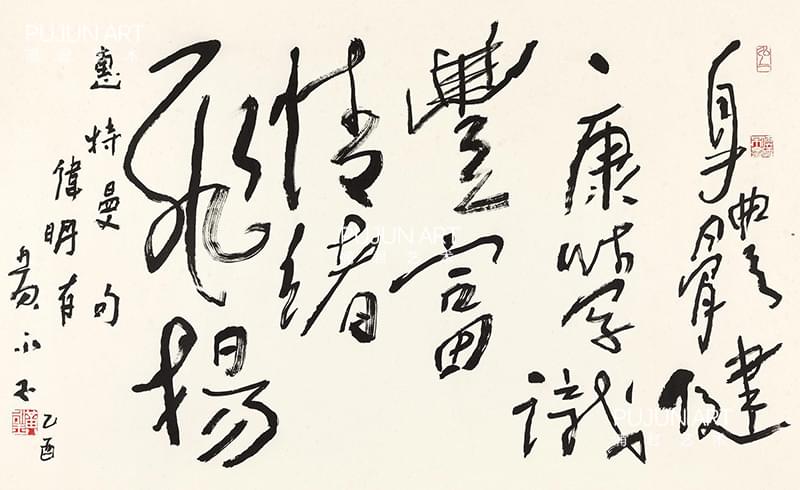 身體健
康學識
豐富
情緒
飛揚
惠特曼句
偉明有
黃永玉
乙酉
PUJUN ART
PUJUN ART
PUJUN ART